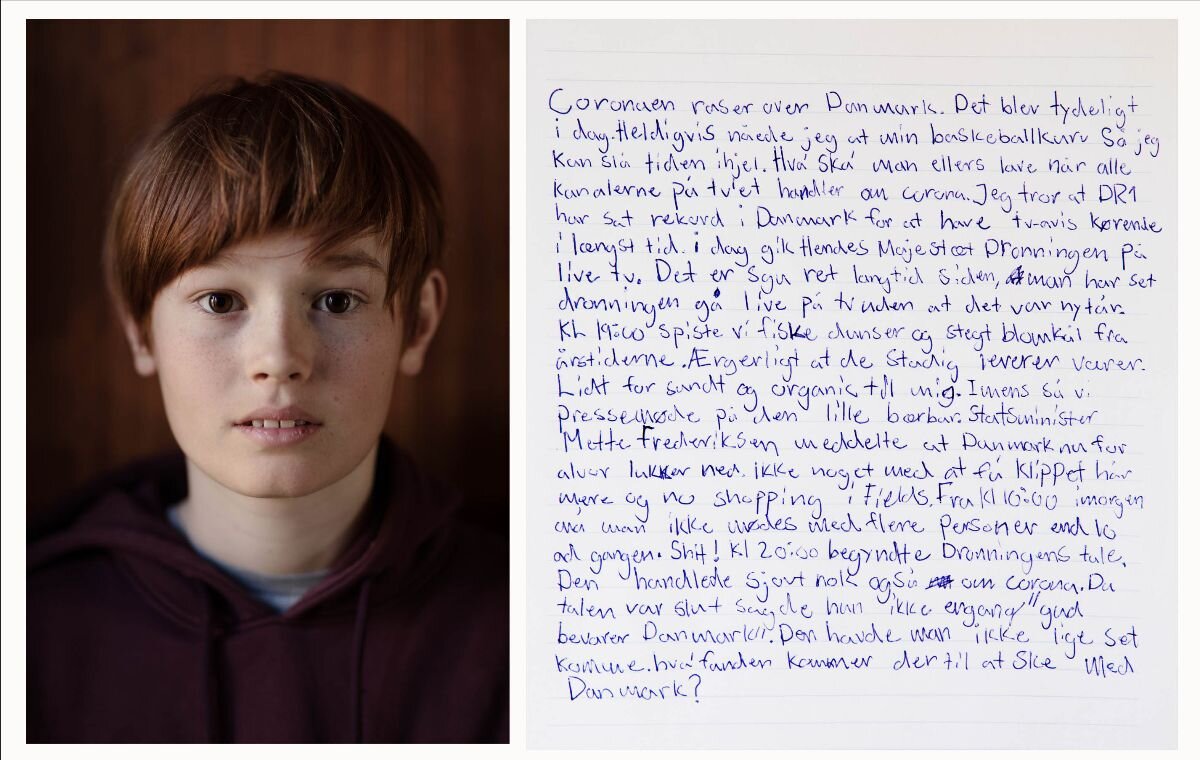 Coronaen raser over Danmark. Det blev tydeligt
i dag. Heldigvis nåede jeg at min baskeballkurv Så jeg
kan slå tiden ihjel. Hva' ska' man ellers lave når alle
kanalerne på tv'et handler om corona. Jeg tror at DR1
har sat rekord i Danmark for at have tv-avis kørende
i længst tid. i dag gik Hendes Majestæt Dronningen på
live tv. Det er sgu ret langtid siden, man har set
dronningen gå live på tv uden at det var nytår.
Kl. 19:00 spiste vi fiske dunser og stegt blomkål fra
årstiderne. Ærgerligt at de stadig leverer varer.
Lidt for sundt og organic til mig. Imens så vi
Pressemøde på den lille bærbar. Statsminister
Mette Frederiksen meddelte at Danmark nu for
alvor lukker ned. ikke noget med at få klippet hår
mere og no shopping i Fields. Fra kl 10:00 imorgen
må man ikke mødes med flere personer end 10
ad gangen. Shit! Kl 20:00 begyndte Dronningens tale.
Den handlede sjovt nok også om corona. Da
talen var slut sagde hun ikke engang "gud
bevarer Danmark". Den havde man ikke lige set
komme. hva' fanden kommer der til at Ske Med
Danmark?